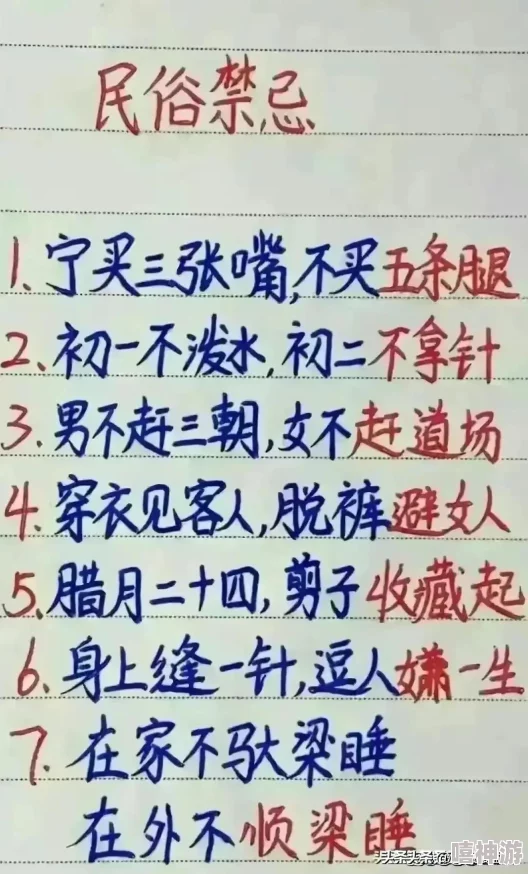 民俗禁忌
1.宁买三张嘴,不买五条腿
2.初一不泼水,初二不拿针
3.男不赶三朝,女不赶道场
4.穿衣见客人,脱裤避女人
5.腊月二十四,剪子收藏起
6.身上缝一针,逗人嫌一生
7.在家不驮梁睡
在外不顺梁睡
嘻神游